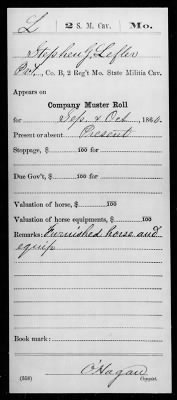 L | 2 S. M. Cav. | Mo.
Stephen J. Lefler
Pvt., Co. B, 2 Reg't Mo. State Militia Cav.
Appears on
Company Muster Roll
for Sep. & Oct., 186
Present or absent Present
Stoppage, $ 100 for
Due Gov't, $ 100 for
Valuation of horse, $ 100
Valuation of horse equipments, $ 100
Remarks: Furnished horse and
equip
Book mark:
O'Hagan
(358) Copyist.